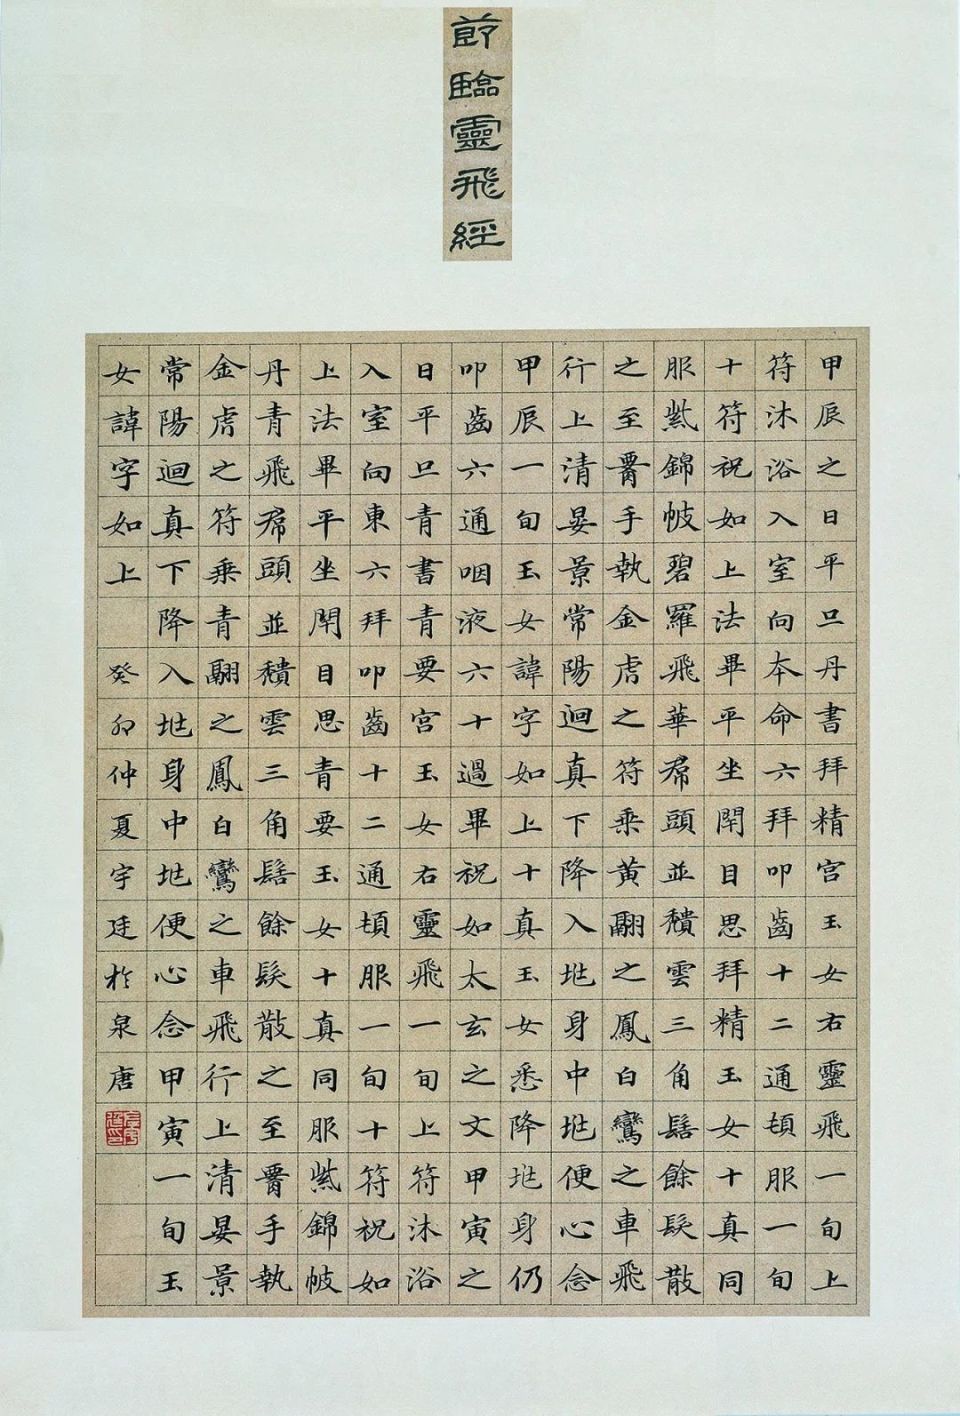 莭臨靈飛經
甲辰之日平旦丹書拜精宮玉女右靈飛一旬上
符沐浴入室向本命六拜叩齒十二通頓服一旬
十符祝如上法畢平坐閉目思拜精玉女十真同
服紫錦帔碧羅飛華帬頭並穨雲三角髻餘髮散
之至腰手執金虎之符乘黃翮之鳳白鸞之車飛
行上清晏景常陽迴真下降入兆身中兆便心念
甲辰一旬玉女諱字如上十真玉女悉降兆身仍
叩齒六通咽液六十過畢祝如太玄之文甲寅之
日平旦青書青要宮玉女右靈飛一旬上符沐浴
入室向東六拜叩齒十二通頓服一旬十符祝如
上法畢平坐閉目思青要玉女十真同服紫錦帔
丹青飛帬頭並穨雲三角髻餘髮散之至腰手執
金虎之符乘青翮之鳳白鸞之車飛行上清晏景
常陽迴真下降入兆身中兆便心念甲寅一旬玉
女諱字如上 癸卯仲夏宇廷於泉唐